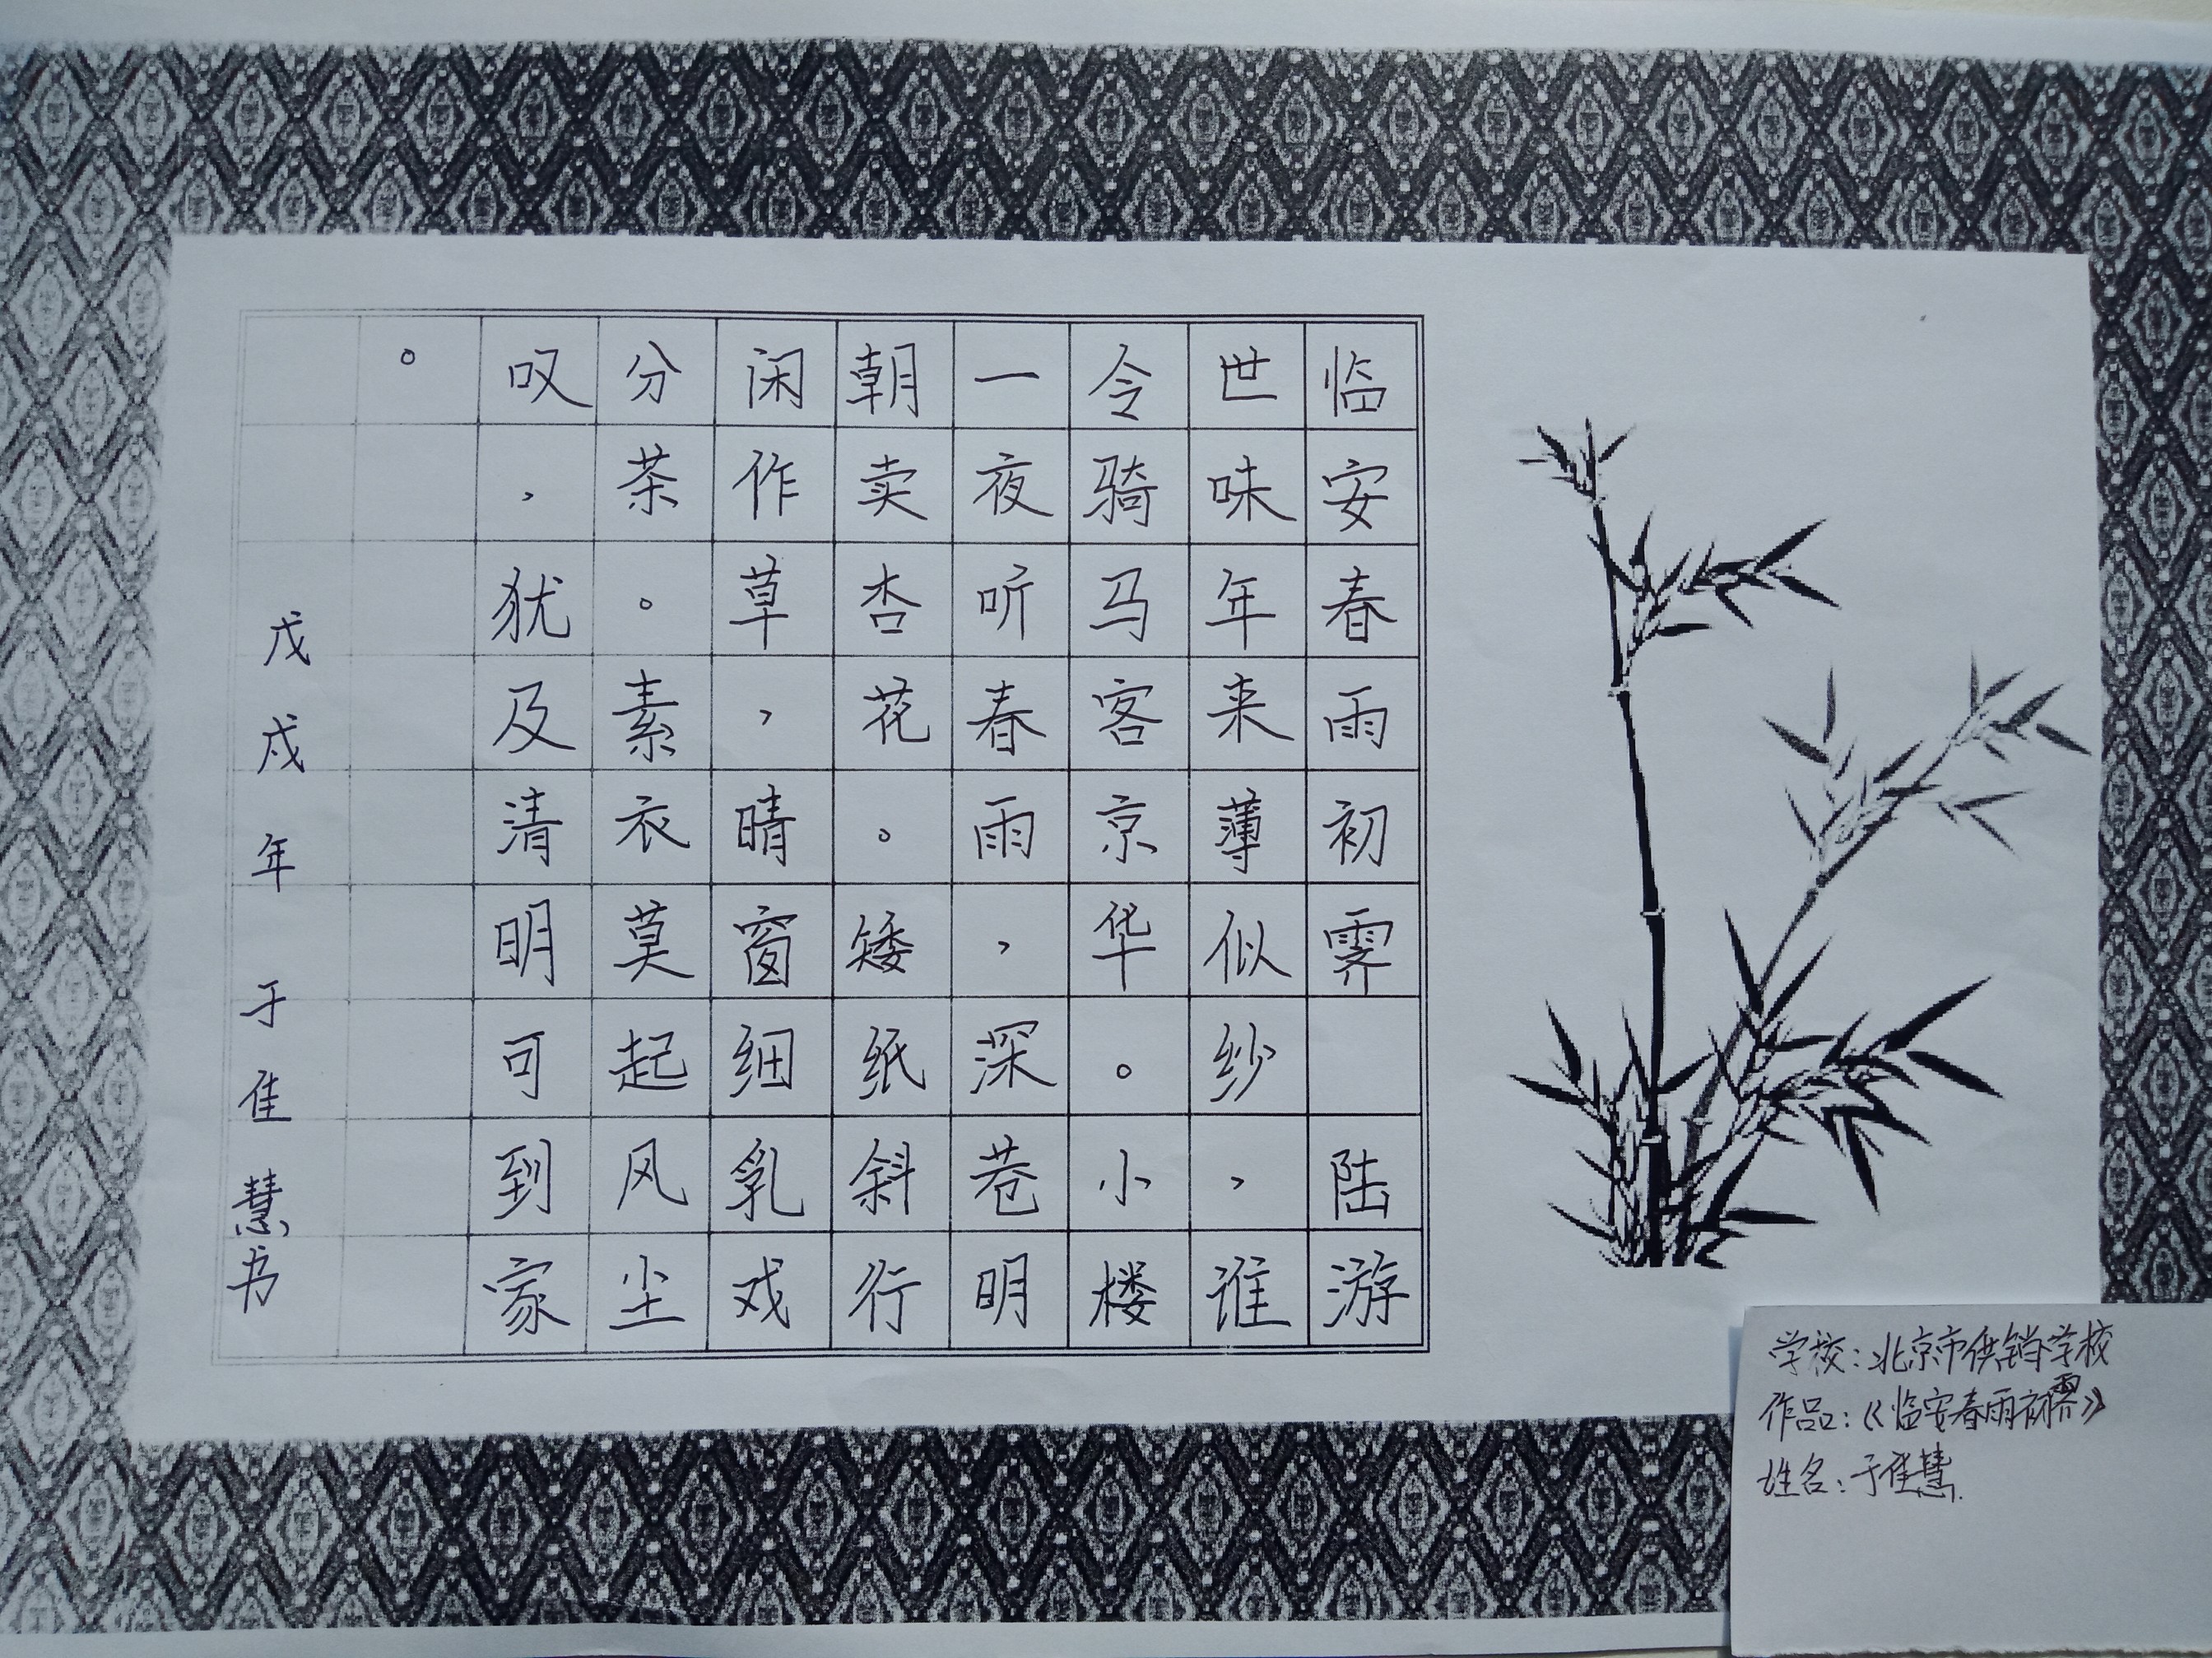 临安春雨初霁 陆游
世味年来薄似纱，谁
令骑马客京华。小楼
一夜听春雨，深巷明
朝卖杏花。矮纸斜行
闲作草，晴窗细乳戏
分茶。素衣莫起风尘
叹，犹及清明可到家
。
戊戌年 于佳慧书
学校：北京市供销学校
作品：《临安春雨初霁》
姓名：于佳慧.